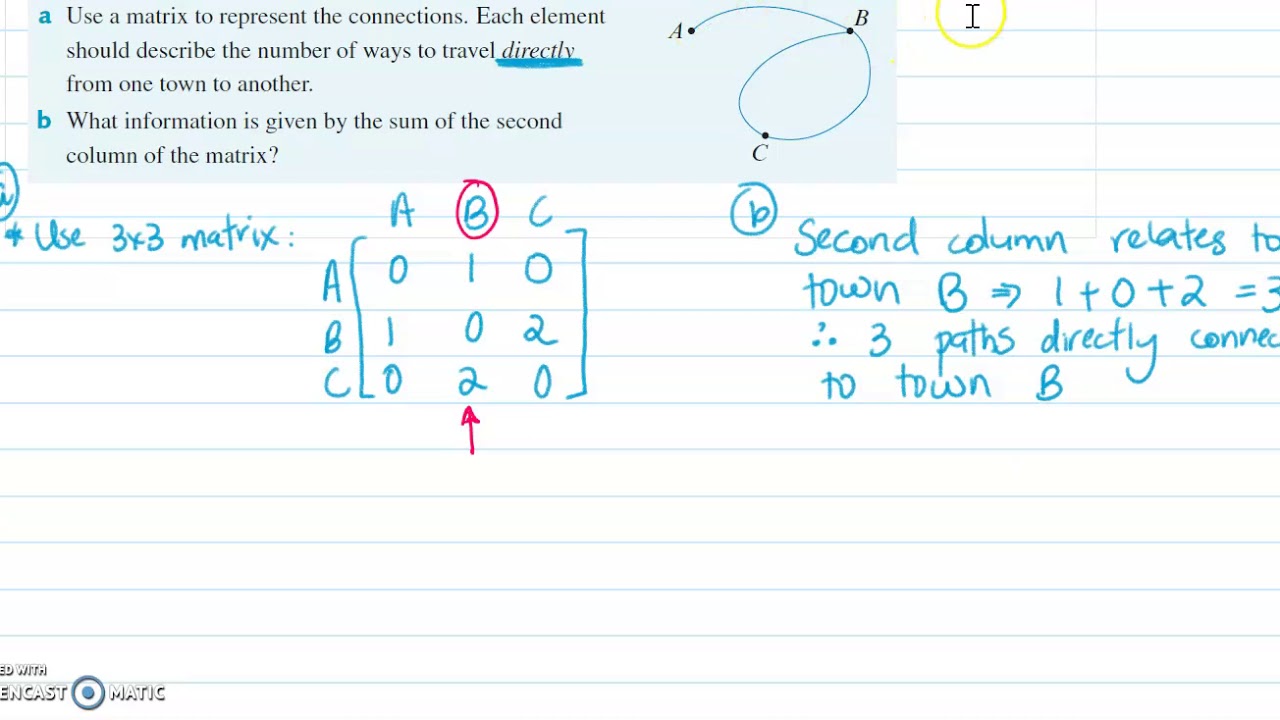 a Use a matrix to represent the connections. Each element
should describe the number of ways to travel directly
from one town to another.
b What information is given by the sum of the second
column of the matrix?
A
B
C
a
* Use 3x3 matrix:
A B C
A 0 1 0
B 1 0 2
C 0 2 0
b
Second column relates to
town B ⇒ 1 + 0 + 2 = 3
∴ 3 paths directly connec
to town B
ED WITH
ENCAST MATIC